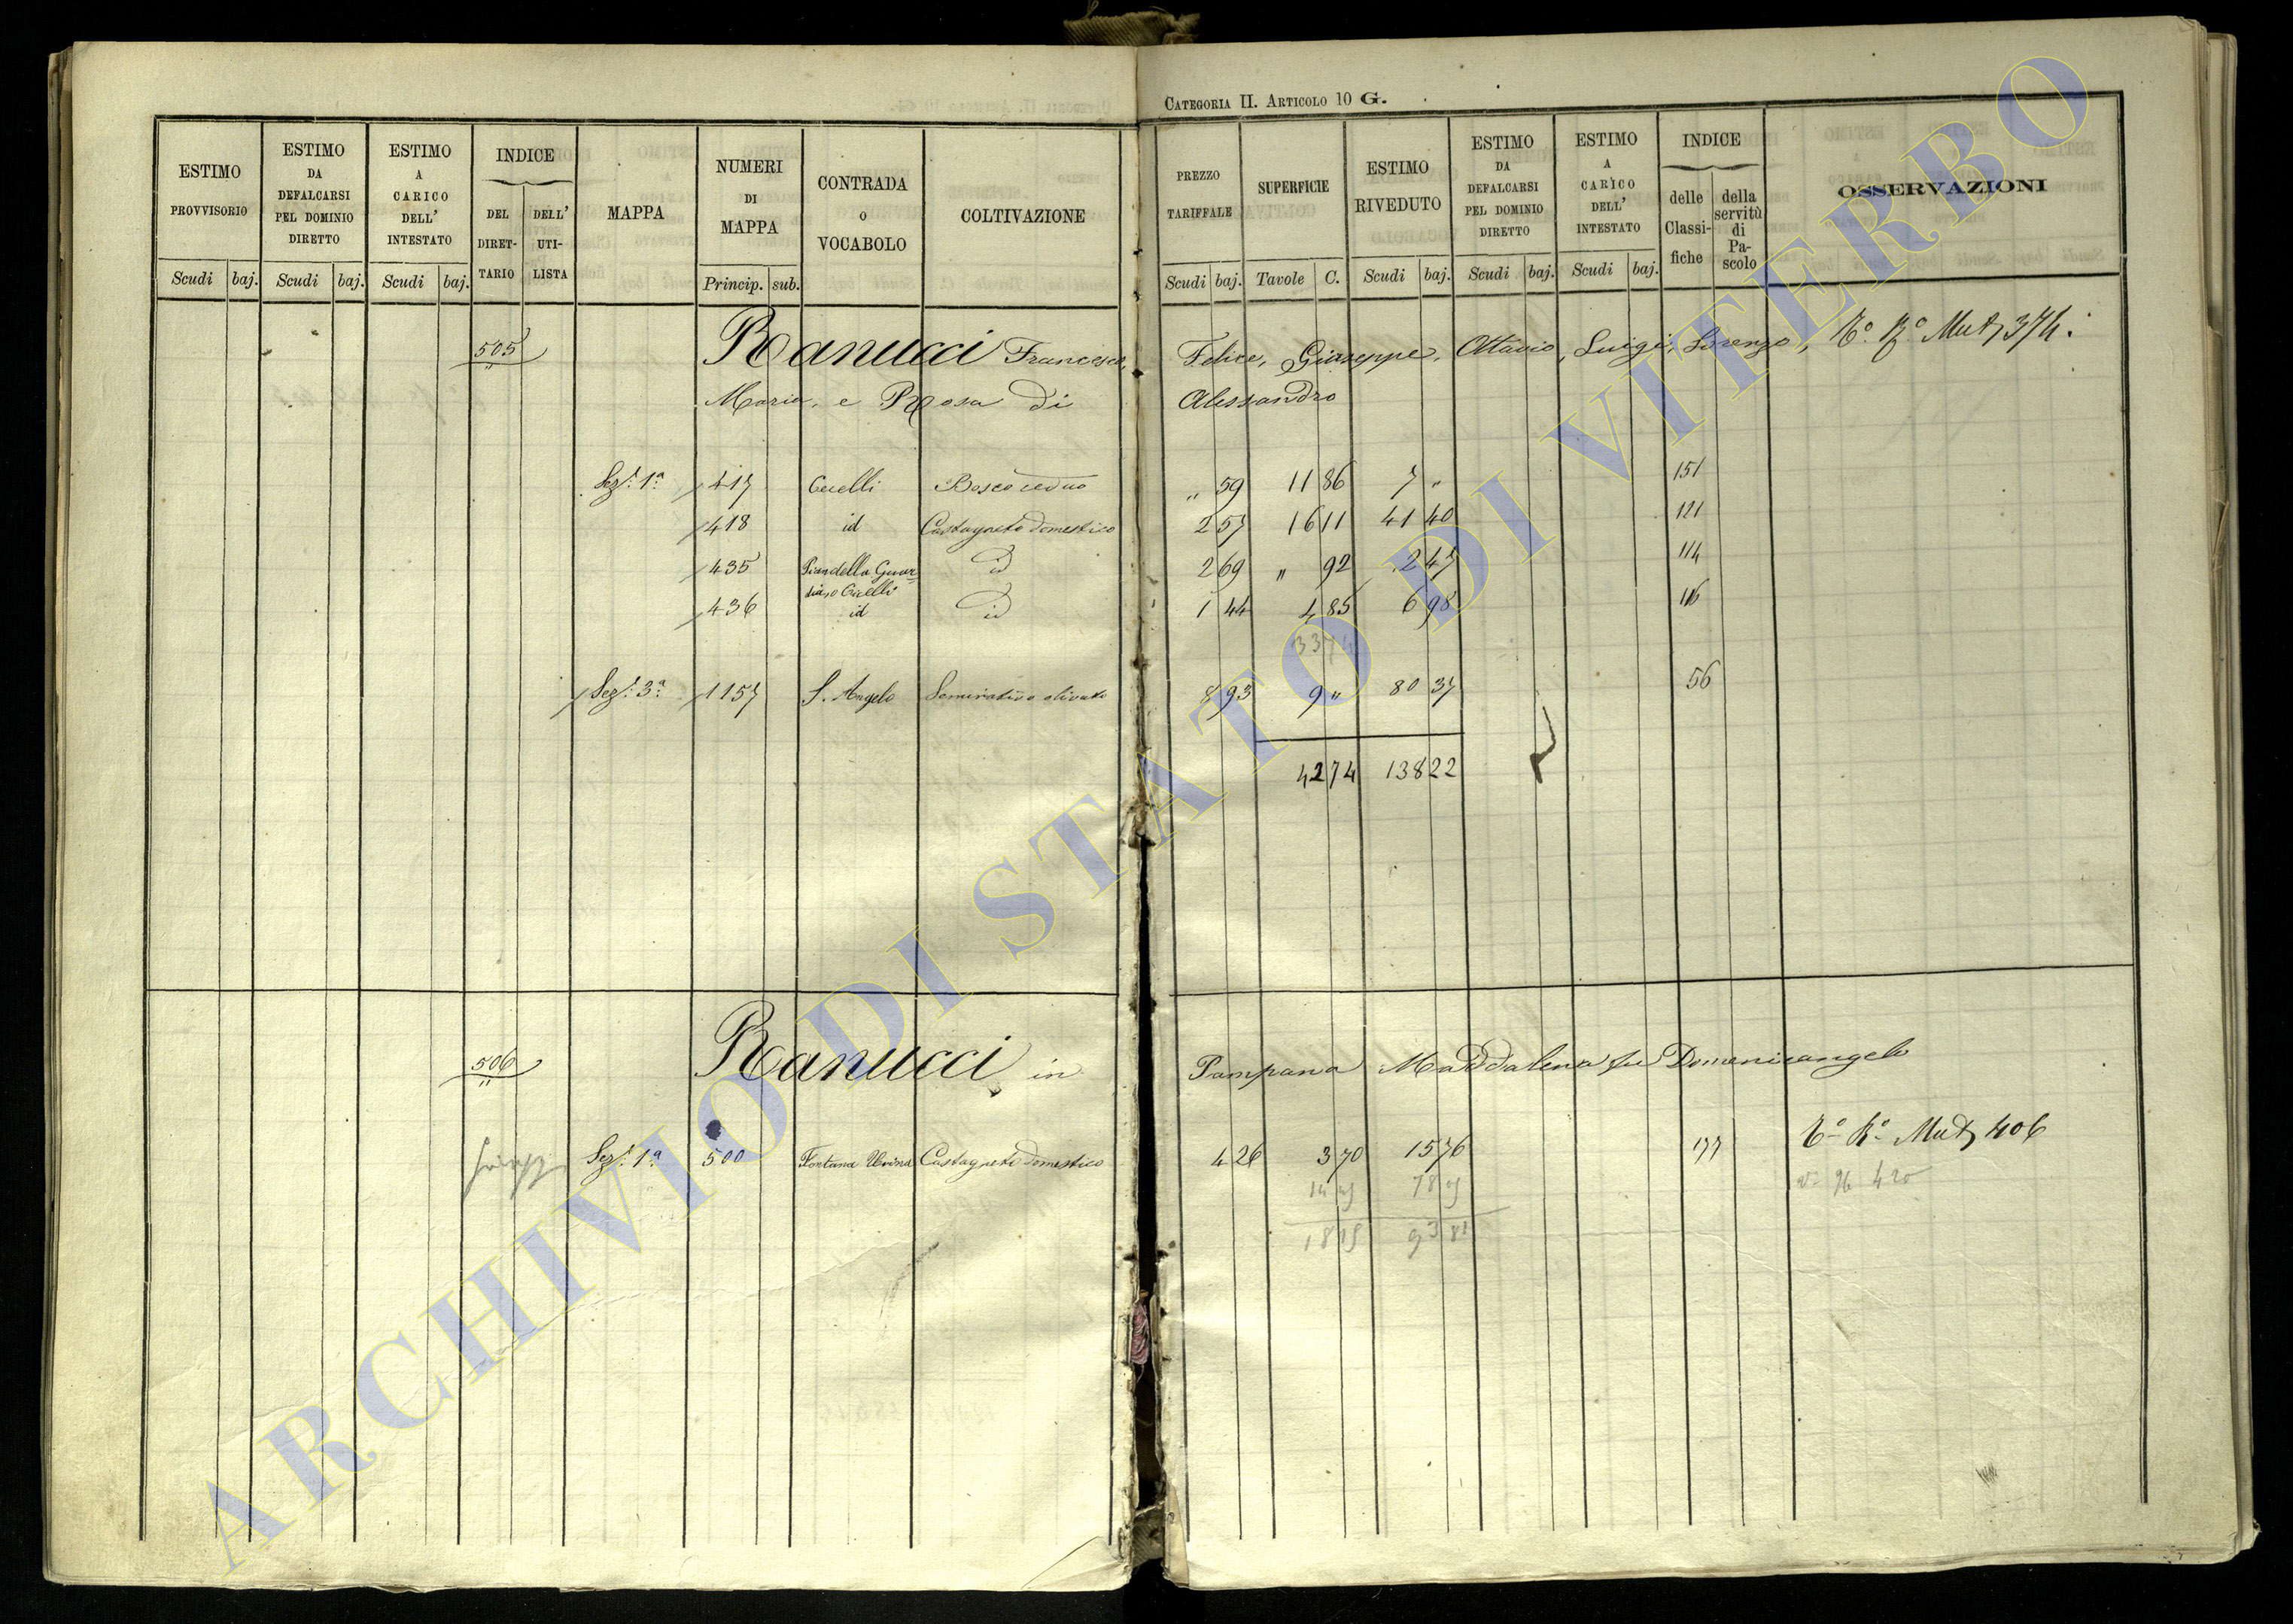 CATEGORIA II. ARTICOLO 10 G.
ESTIMO PROVVISORIO Scudi baj.
ESTIMO DA DEFALCARSI PEL DOMINIO DIRETTO Scudi baj.
ESTIMO A CARICO DELL' INTESTATO Scudi baj.
INDICE DEL DIRETTARIO DELL' UTILISTA
MAPPA
NUMERI DI MAPPA Princip. sub.
CONTRADA O VOCABOLO
COLTIVAZIONE
PREZZO TARIFFALE Scudi baj.
SUPERFICIE Tavole C.
ESTIMO RIVEDUTO Scudi baj.
ESTIMO DA DEFALCARSI PEL DOMINIO DIRETTO Scudi baj.
ESTIMO A CARICO DELL' INTESTATO Scudi baj.
INDICE delle Classifiche della servitù di Pascolo
OSSERVAZIONI
505 Ranucci Francesco, Felice, Giuseppe, Ottavio, Luigi, Lorenzo, Mut 374
Maria, e Rosa di Alessandro
Sez. 1ª 417 Cecelli Bosco ceduo " 59 11 86 7 " 151
418 id Castagneto domestico 2 57 16 11 41 40 121
435 Pian della Guar- id 2 69 " 92 2 47 114
436 id id 1 44 4 85 6 98 116
33 74
Sez. 3ª 1157 S. Angelo Seminativo olivato 8 93 9 " 80 37 56
42 74 138 22
506 Ranucci in Pampana Maddalena fu Domenicangelo
Sez. 1ª 500 Fontana Castagneto domestico 4 26 3 70 15 76 177 Mut 406
18 15 93 81
ARCHIVIO DI STATO DI VITERBO